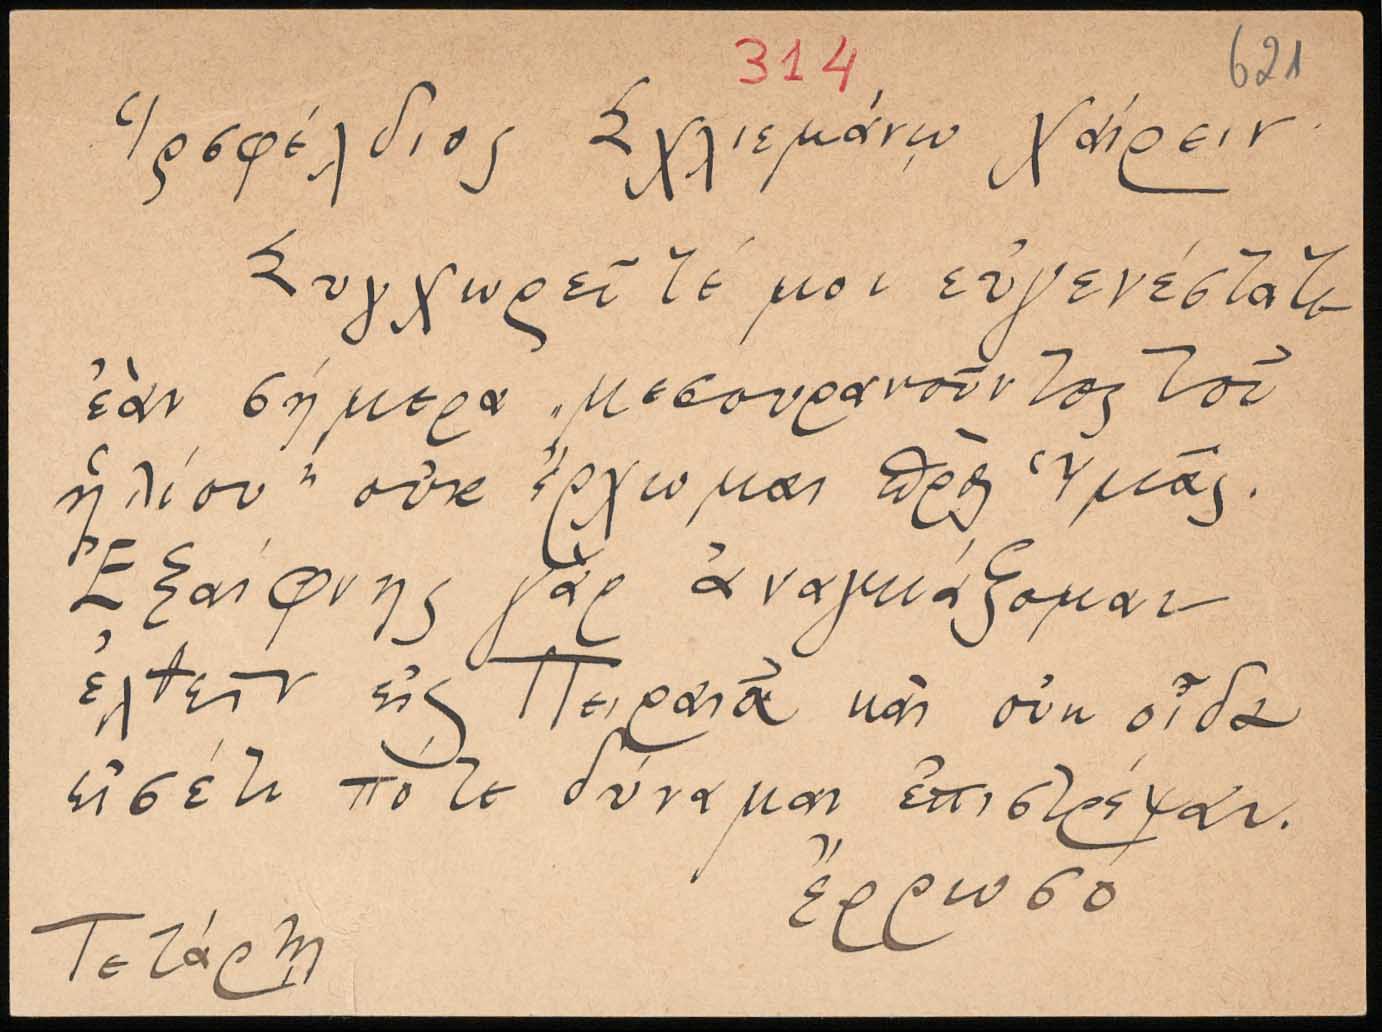 314 621
Ἱρσφέλδιος Σχλιεμάνῳ χαίρειν
Συγχωρεῖτέ μοι εὐγενέστατε
ἐὰν σήμερα „μεσουρανοῦντος τοῦ
ἡλίου“ οὐκ ἔρχωμαι πρὸς Ὑμᾶς.
Ἐξαίφνης γὰρ ἀναγκάζομαι
ἐλθεῖν εἰς Πειραιᾶ καὶ οὐκ οἶδα
εἰσέτι πότε δύναμαι ἐπιστρέψαι.
Ἔρρωσο
Τετάρτῃ